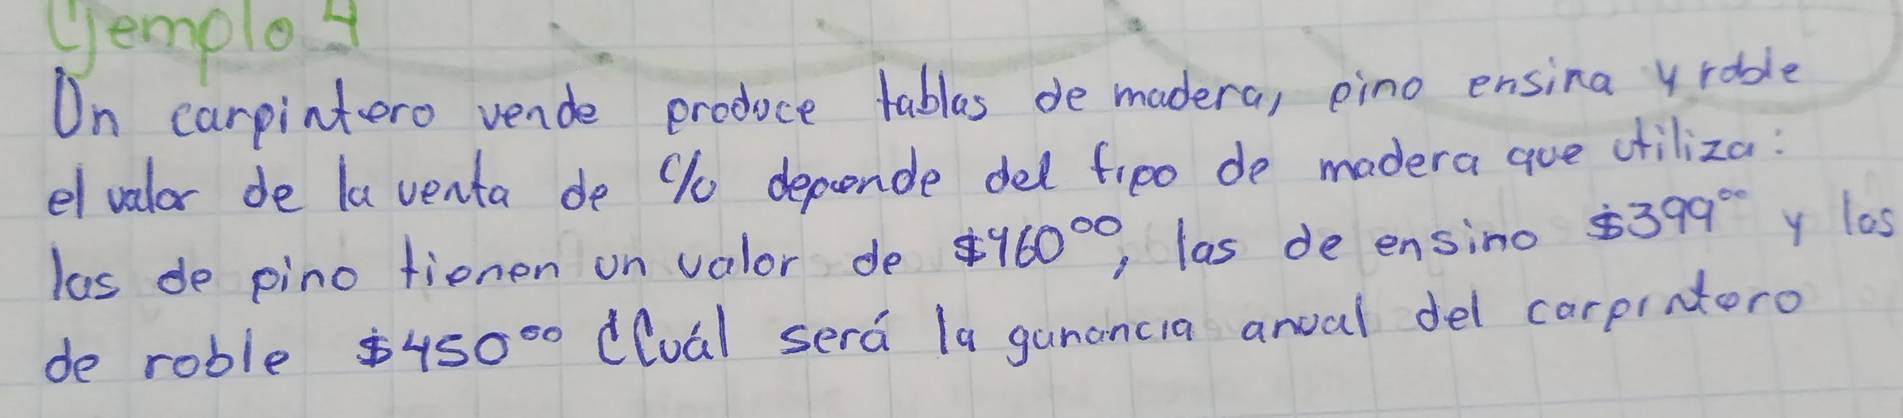 Ejemplo 4
Un carpintero vende produce tablas de madera, pino ensina y roble
el valor de la venta de c/u depende del tipo de madera que utiliza:
las de pino tienen un valor de $460⁰⁰, las de ensino $399⁰⁰ y las
de roble $450⁰⁰ ¿Cuál será la ganancia anual del carpintero